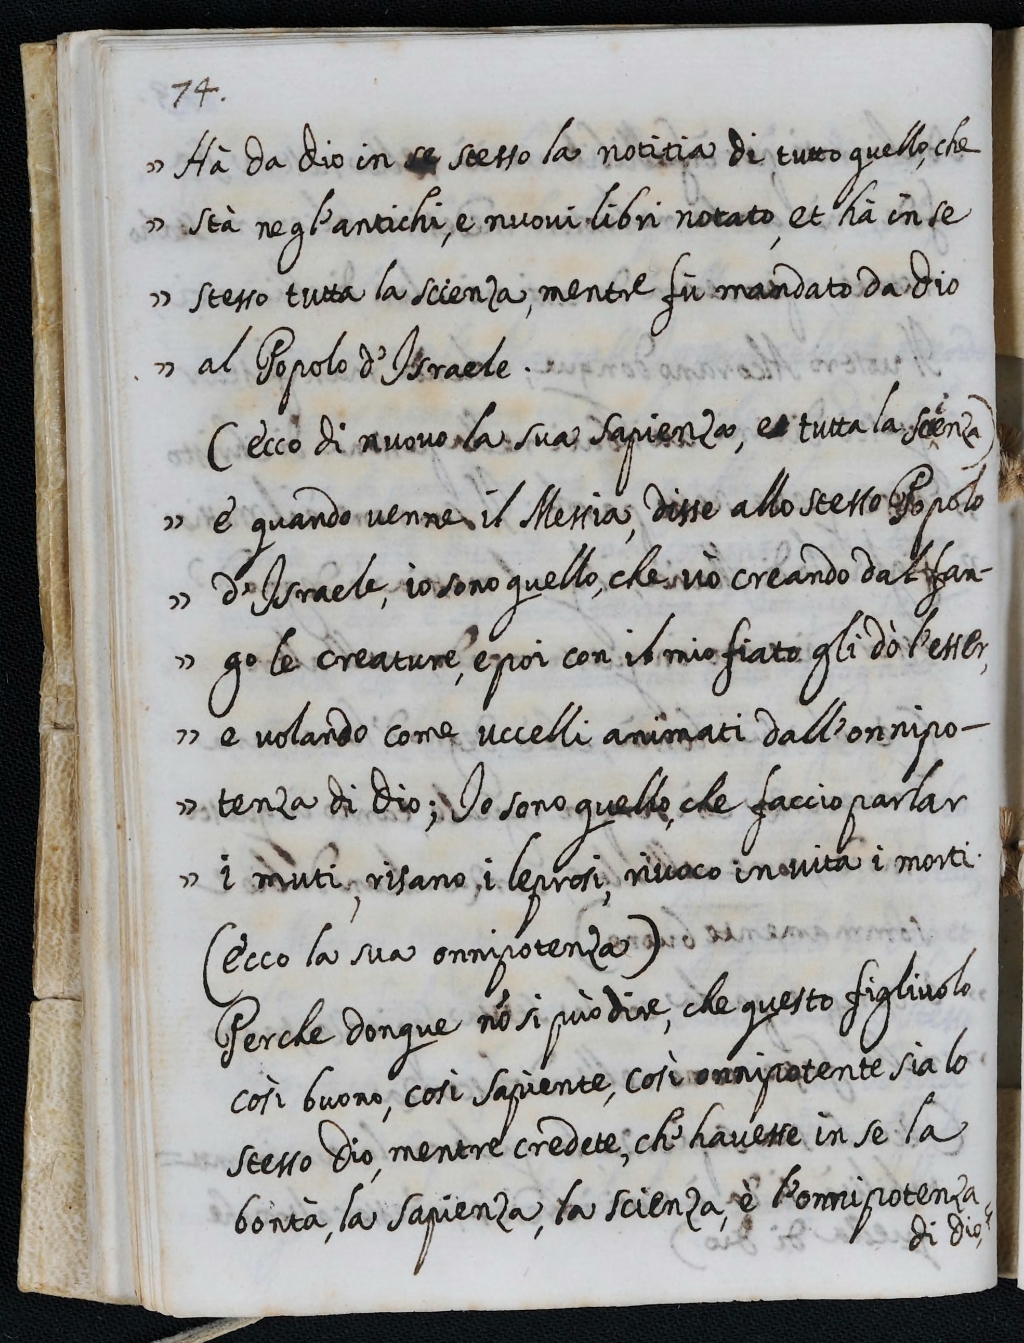 74.
» Hà da Dio in se stesso la notitia di tutto quello, che
» stà negl'antichi, e nuovi libri notato, et hà in se
» stesso tutta la scienza, mentre fù mandato da Dio
» al Popolo d'Israele.
(ècco di nuovo la sua sapienza, e tutta la scienza)
» e quando venne il Messia, disse allo stesso Popolo
» d'Israele, io sono quello, che vò creando dal fan-
» go le creature, e poi con il mio fiato gli dò l'esser,
» e volando come uccelli animati dall'onnipo-
» tenza di Dio; Io sono quello, che faccio parlar
» i muti, risano i leprosi, rivoco in vita i morti.
(ècco la sua onnipotenza)
Perche donque nõ si può dire, che questo figliuolo
così buono, così sapiente, così onnipotente sia lo
stesso Dio, mentre credete, ch'havesse in se la
bontà, la sapienza, la scienza, è l'onnipotenza
di Dio,